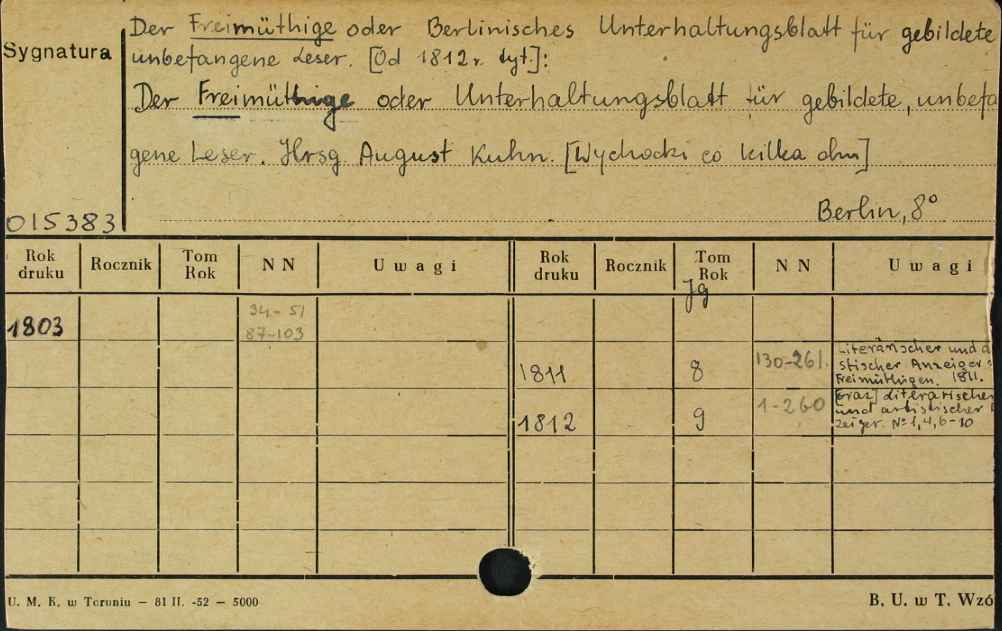 Der Freimüthige oder Berlinisches Unterhaltungsblatt für gebildete
Sygnatura
unbefangene Leser. [Od 1812 r. tyt.]:
Der Freimüthige oder Unterhaltungsblatt für gebildete, unbefa
gene Leser. Hrsg. August Kuhn. [Wychodzi co kilka dni]
Berlin, 8°
015383
Rok druku Rocznik Tom Rok N N Uwagi Rok druku Rocznik Tom Rok N N Uwagi
Jg
1803 34-51
87-103
1811 8 130-261. Literärischer und a
stischer Anzeiger
Freimüthigen. 1811.
1812 9 1-260 [oraz] Literarischer
und artistischer
zeiger. No 1,4,6-10
U. M. K. w Toruniu — 81 II. -52 — 5000
B. U. w T. Wzó